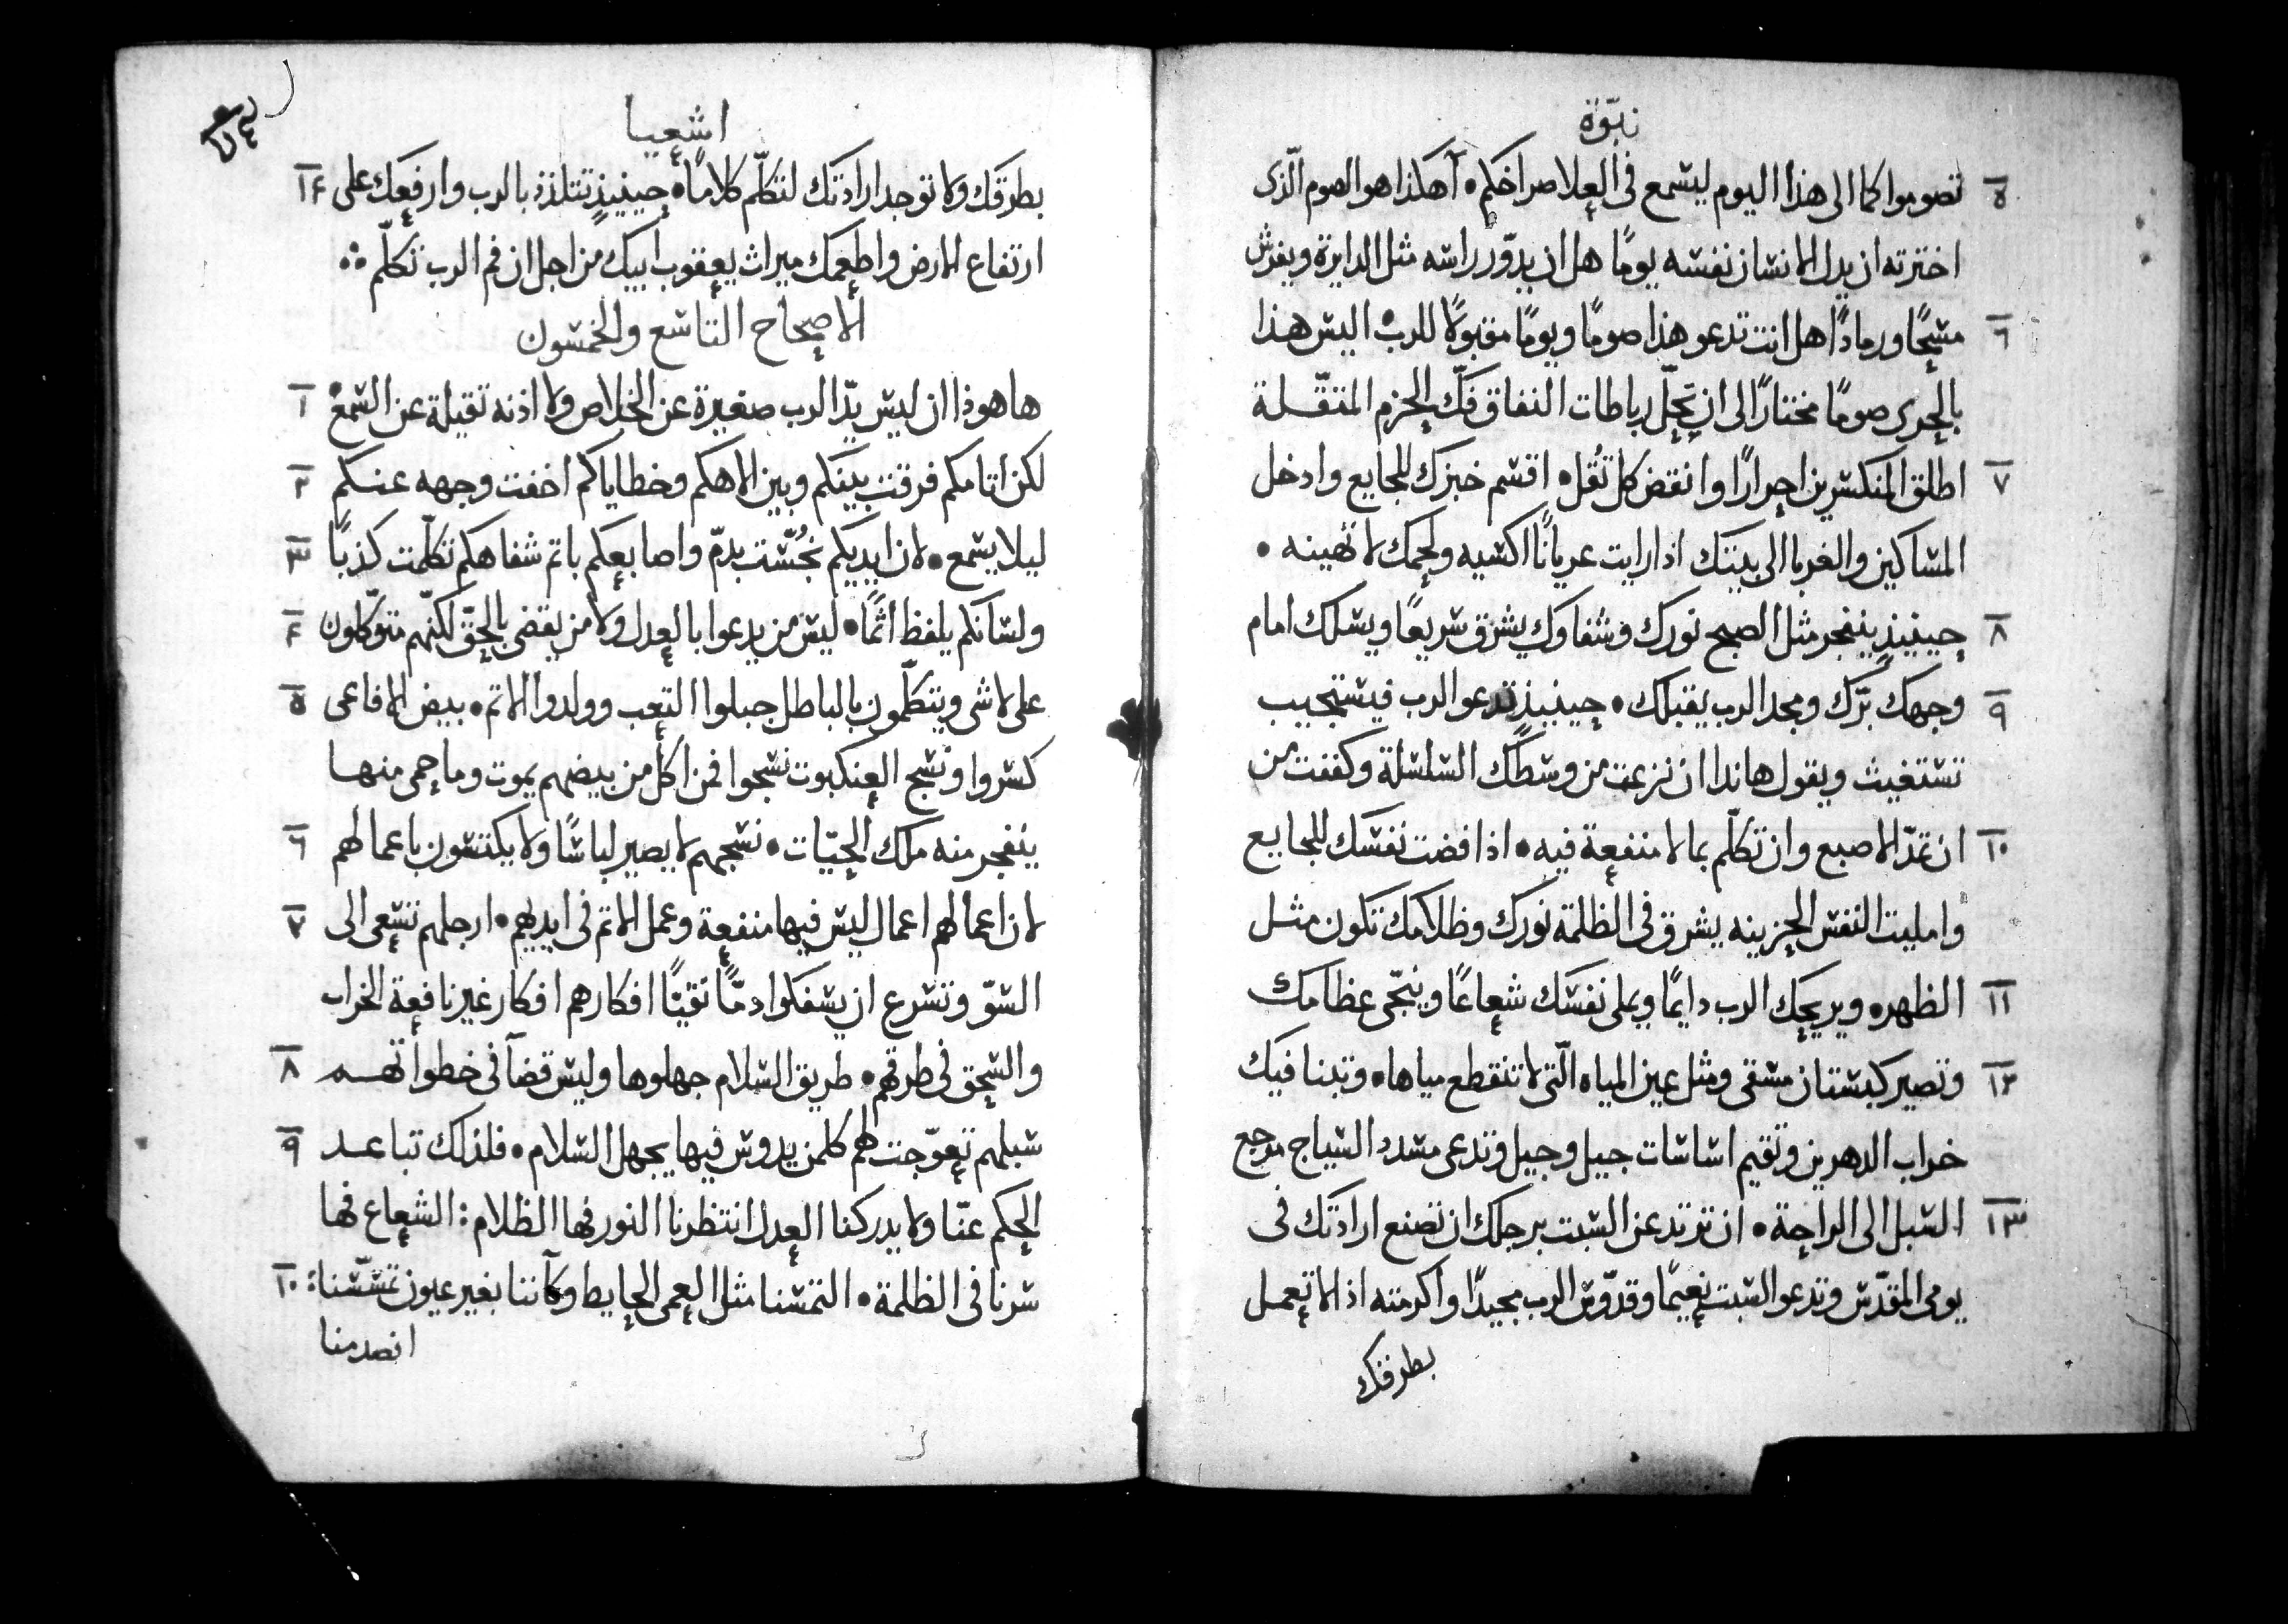 نبوّة
٥ تصوموا كما الى هذا اليوم ليسمع فى العلا صراخكم • أهكذا هو الصوم الّذى
اخترته ان يدل الانسان نفسه يومًا هل ان يدوّر راسه مثل الدايرة ويفرش
٦ مسحًا ورمادًا هل انت تدعو هذا صومًا ويومًا مقبولًا للرب • اليس هذا
بالحرى صومًا مختارًا الى ان تحلّ رباطات النفاق فكّ الحزم المثقّلة
٧ اطلق المنكسرين احرارًا وانقض كل ثقل • اقسم خبزك للجايع وادخل
المساكين والغربا الى بيتك اذا رايت عريانًا اكسيه ولحمك لا تهينه •
٨ حينيذٍ ينفجر مثل الصبح نورك وشفاوك يشرق سريعًا ويسلك امام
٩ وجهك برّك ومجد الرب يقبلك • حينيذٍ تدعو الرب فيستجيب
تستغيث ويقول هاندا ان نزعت من وسطك السلسلة وكففت من
١٠ ان تمدّ الاصبع وان تكلّم بما لا منفعة فيه • اذا فضت نفسك للجايع
وامليت النفس الحزينه يشرق فى الظلمة نورك وظلامك تكون مثل
١١ الظهر • ويريحك الرب دايمًا ويملى نفسك شعاعًا وينجّى عظامك
١٢ وتصير كبستان مسقى ومثل عين المياه الّتى لا تنقطع مياها • وتبنا فيك
خراب الدهرين وتقيم اساسات جيل وجيل وتدعى مشدد السياج مرجع
١٣ السبل الى الراحة • ان ترتد عن السبت برجلك ان تصنع ارادتك فى
يومى المقدّس وتدعو السبت نعيمًا وقدّوس الرب مجيدًا واكرمته اذ لا تعمل
بطرقك
اشعيا
بطرقك ولا توجد ارادتك لتكلّم كلامًا • حينيذٍ تتلذذ بالرب وارفعك على ١٤
ارتفاع الارض واطعمك ميراث يعقوب ابيك من اجل ان فم الرب تكلّم ∴
الاصحاح التاسع والخمسون
ها هوذا ان ليس يدّ الرب صغيرة عن الخلاص ولا اذنه ثقيلة عن السمع • ١
لكن اثامكم فرقت بينكم وبين الاهكم وخطاياكم اخفت وجهه عنكم ٢
ليلا يسمع • لان ايديكم نجّست بدمّ واصابعكم باثم شفاهكم تكلّمت كذبًا ٣
ولسانكم يلفظ اثمًا • ليس من يدعوا بالعدل ولا من يقضى بالحقّ لكنّهم متوكّلون ٤
على لا شى ويتكلّمون بالباطل حبلوا التعب وولدوا الاثم • بيض الافاعى ٥
كسروا ونسج العنكبوت نسجوا فمن اكل من بيضهم يموت وما حمى منها
ينفجر منه ملك الحيّات • نسجهم لا يصير لباسًا ولا يكتسون باعمالهم ٦
لان اعمالهم اعمال ليس فيها منفعة وعمل الاثم فى ايديهم • ارجلهم تسعى الى ٧
السوّ وتسرع ان يسفكوا دمًّا نقيًّا افكارهم افكار غير نافعة الخراب
والسحق فى طرقهم • طريق السلام جهلوها وليس قضآ فى خطواتهم ٨
سبلهم تعوّجت لهم كلمن يدوس فيها يجهل السلام • فلذلك تباعد ٩
الحكم عنّا ولا يدركنا العدل انتظرنا النور فها الظلام : الشعاع فها
سرنا فى الظلمة • التمسنا مثل العمى الحايط وكأننا بغير عيون تمسّسنا : ١٠
انصدمنا